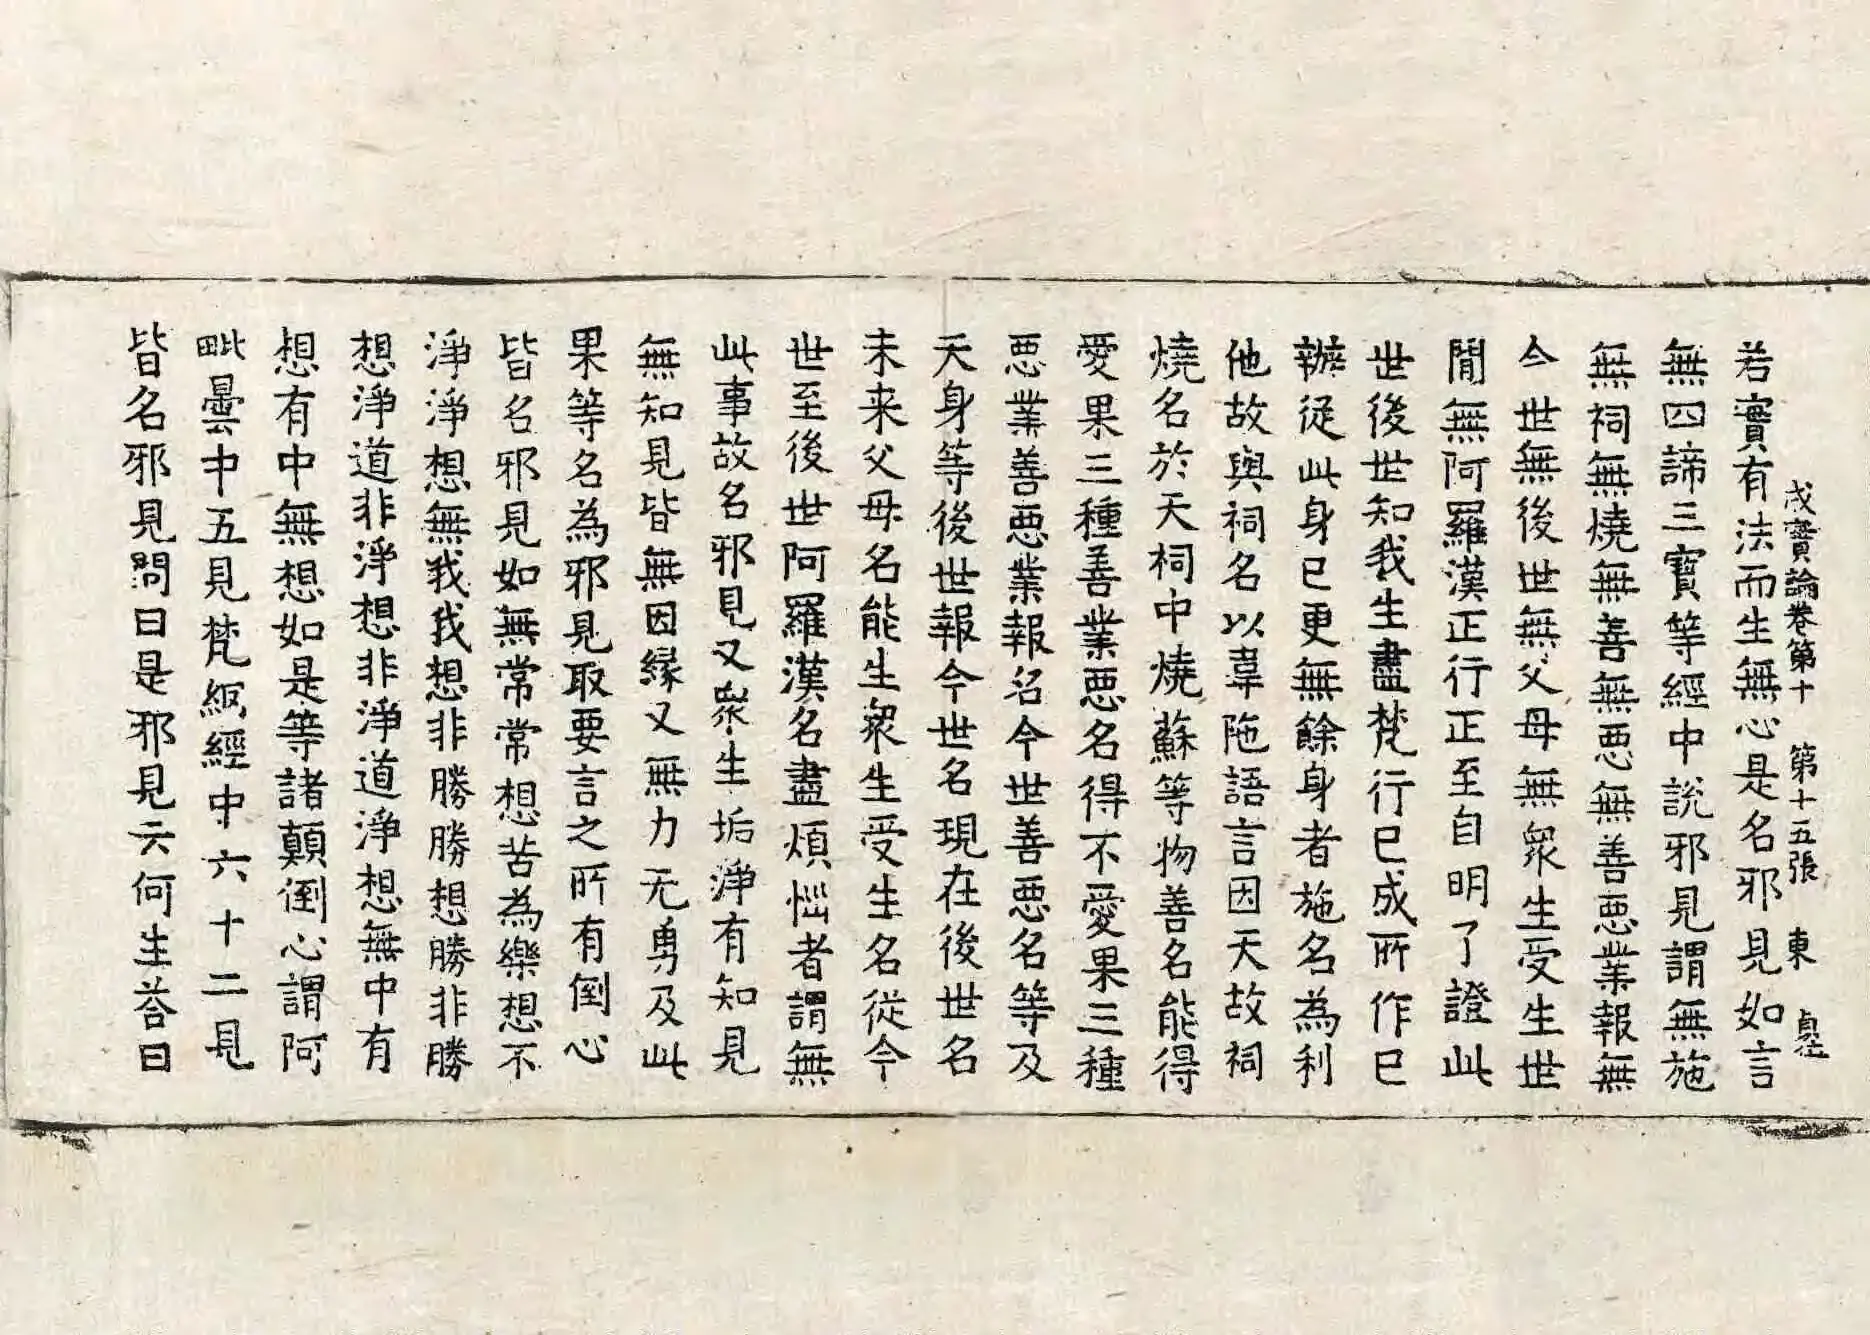 成實論卷第十　第十五張　東
若實有法而生無心是名邪見如言
無四諦三寶等經中說邪見謂無施
無祠無燒無善無惡無善惡業報無
今世無後世無父母無衆生受生世
閒無阿羅漢正行正至自明了證此
世後世知我生盡梵行已成所作已
辦從此身已更無餘身者施名為利
他故與祠名以韋陁語言因天故祠
燒名於天祠中燒蘇等物善名能得
愛果三種善業惡名得不愛果三種
惡業善惡業報名今世善惡名等及
天身等後世報今世名現在後世名
未来父母名能生衆生受生名從今
世至後世阿羅漢名盡煩惱者謂無
此事故名邪見又衆生垢淨有知見
無知見皆無因緣又無力无勇及此
果等名為邪見取要言之所有倒心
皆名邪見如無常常想苦為樂想不
淨淨想無我我想非勝勝想勝非勝
想淨道非淨想非淨道淨想無中有
想有中無想如是等諸顛倒心謂阿
毗曇中五見梵網經中六十二見
皆名邪見問曰是邪見云何生荅曰